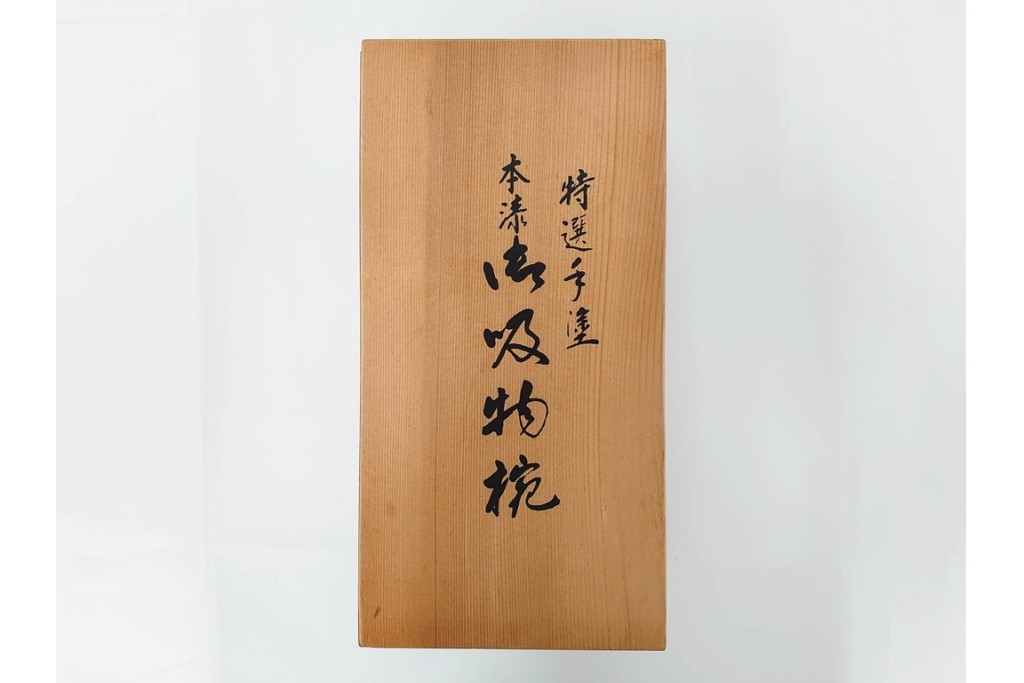 特選手塗
本漆御吸物椀